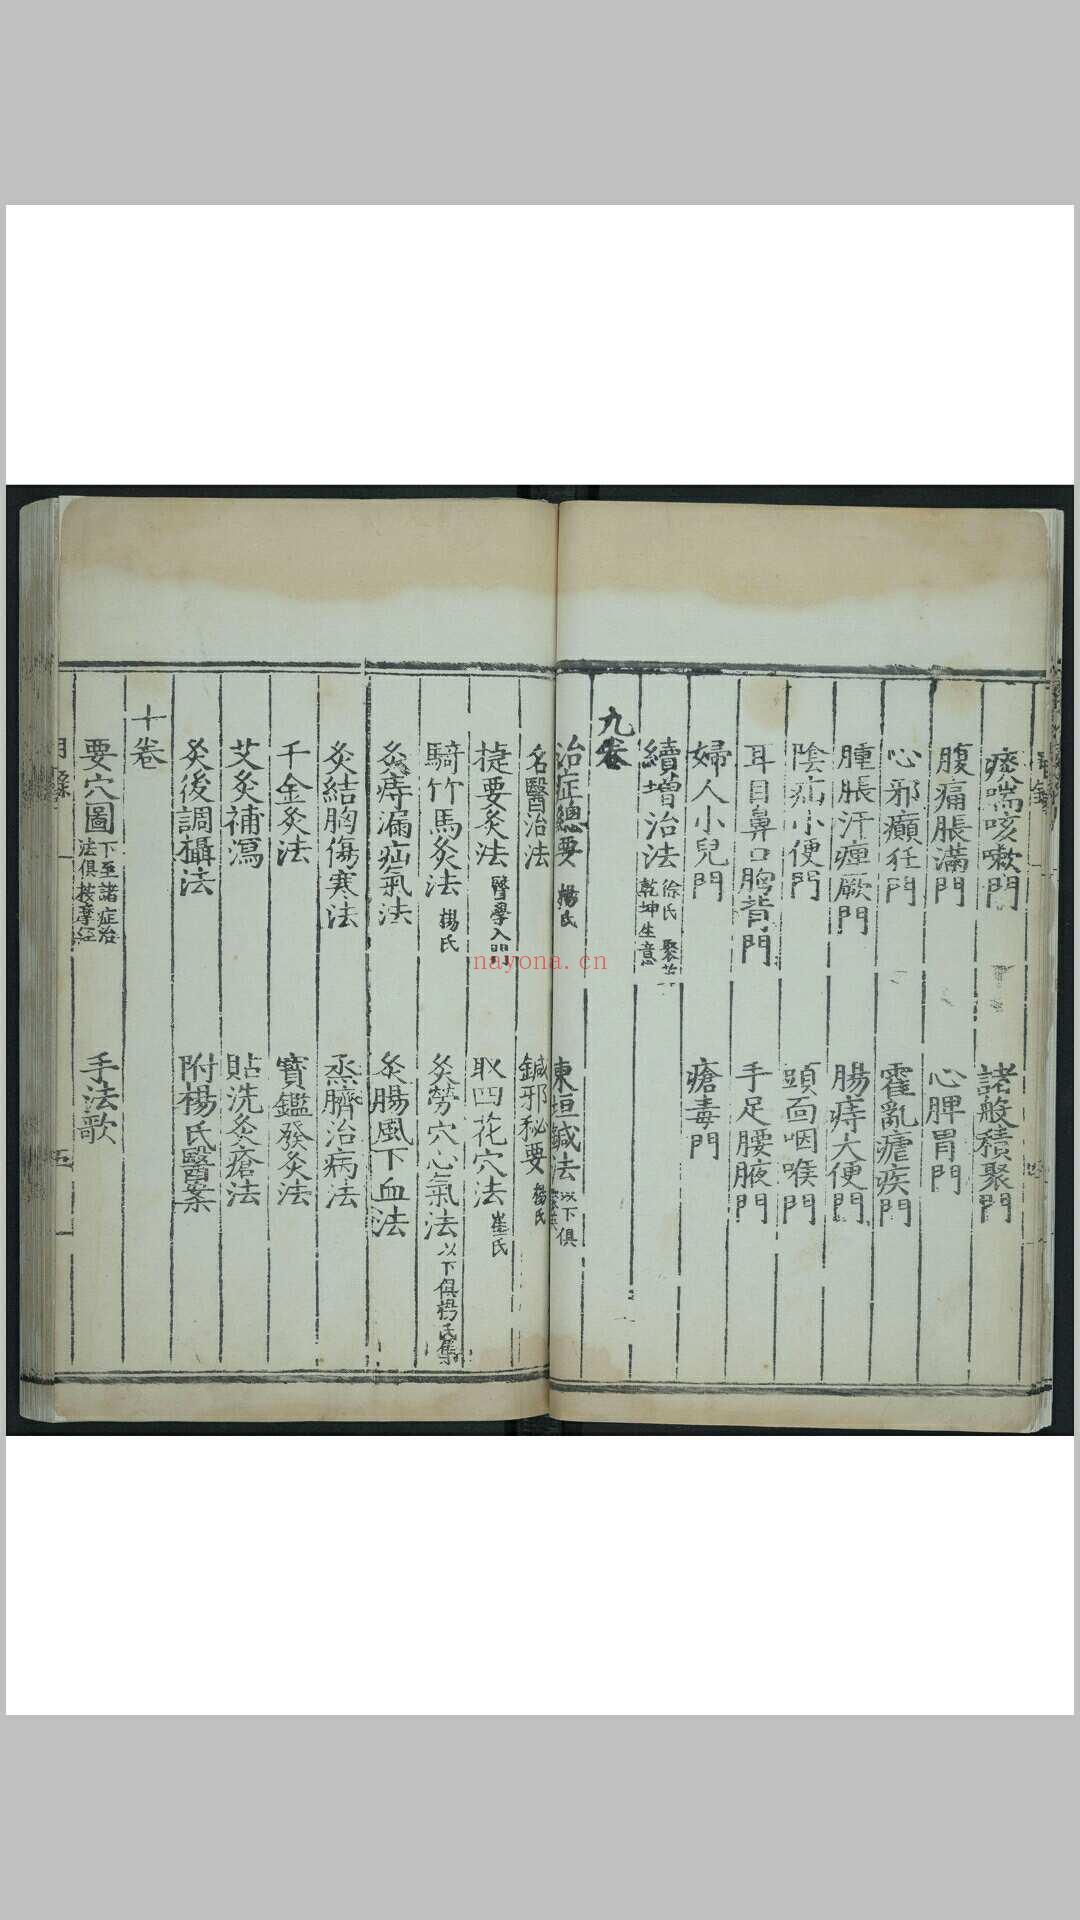 痰喘咳嗽門 諸般積聚門
腹痛脹滿門 心脾胃門
心邪癲狂門 霍亂瘧疾門
腫脹汗痺厥門 腸痔大便門
陰疝小便門 頭面咽喉門
耳目鼻口胸背門 手足腰腋門
婦人小兒門 瘡毒門
續增治法 徐氏 聚英 乾坤生意
九卷
治症總要 楊氏 東垣鍼法 以下俱聚英
名醫治法 鍼邪秘要 楊氏
捷要灸法 醫學入門 取四花穴法 崔氏
騎竹馬灸法 楊氏 灸勞穴心氣法 以下俱楊氏集
灸痔漏疝氣法 灸腸風下血法
灸結胸傷寒法 烝臍治病法
千金灸法 寶鑑發灸法
艾灸補瀉 貼洗灸瘡法
灸後調攝法 附楊氏醫案
十卷
要穴圖 下至諸症治法俱按摩經 手法歌
nayona.cn